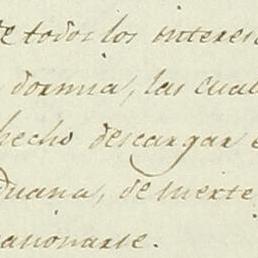 de todos los interes
dormia, las cual
hecho descargar e
duana, de suerte
narse.